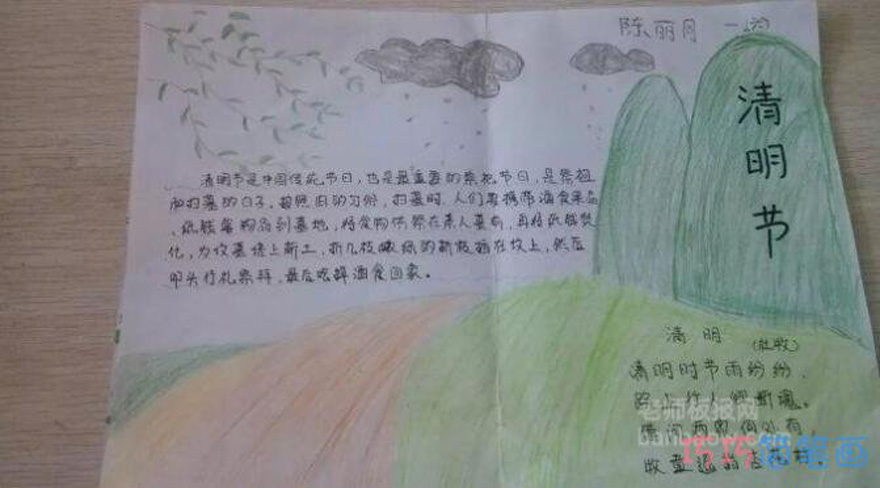 陈丽月 一
清明节
清明节是中国传统节日，也是最重要的祭祀节日，是祭祖
和扫墓的日子。按照旧的习俗，扫墓时，人们要携带酒食果品
、纸钱等物品到墓地，将食物供祭在亲人墓前，再将纸钱焚
化，为坟墓培上新土，折几枝嫩绿的新枝插在坟上，然后
叩头行礼祭拜，最后吃掉酒食回家。
清明 (杜牧)
清明时节雨纷纷，
路上行人欲断魂。
借问酒家何处有，
牧童遥指杏花村。
老师板报网
巧巧简笔画